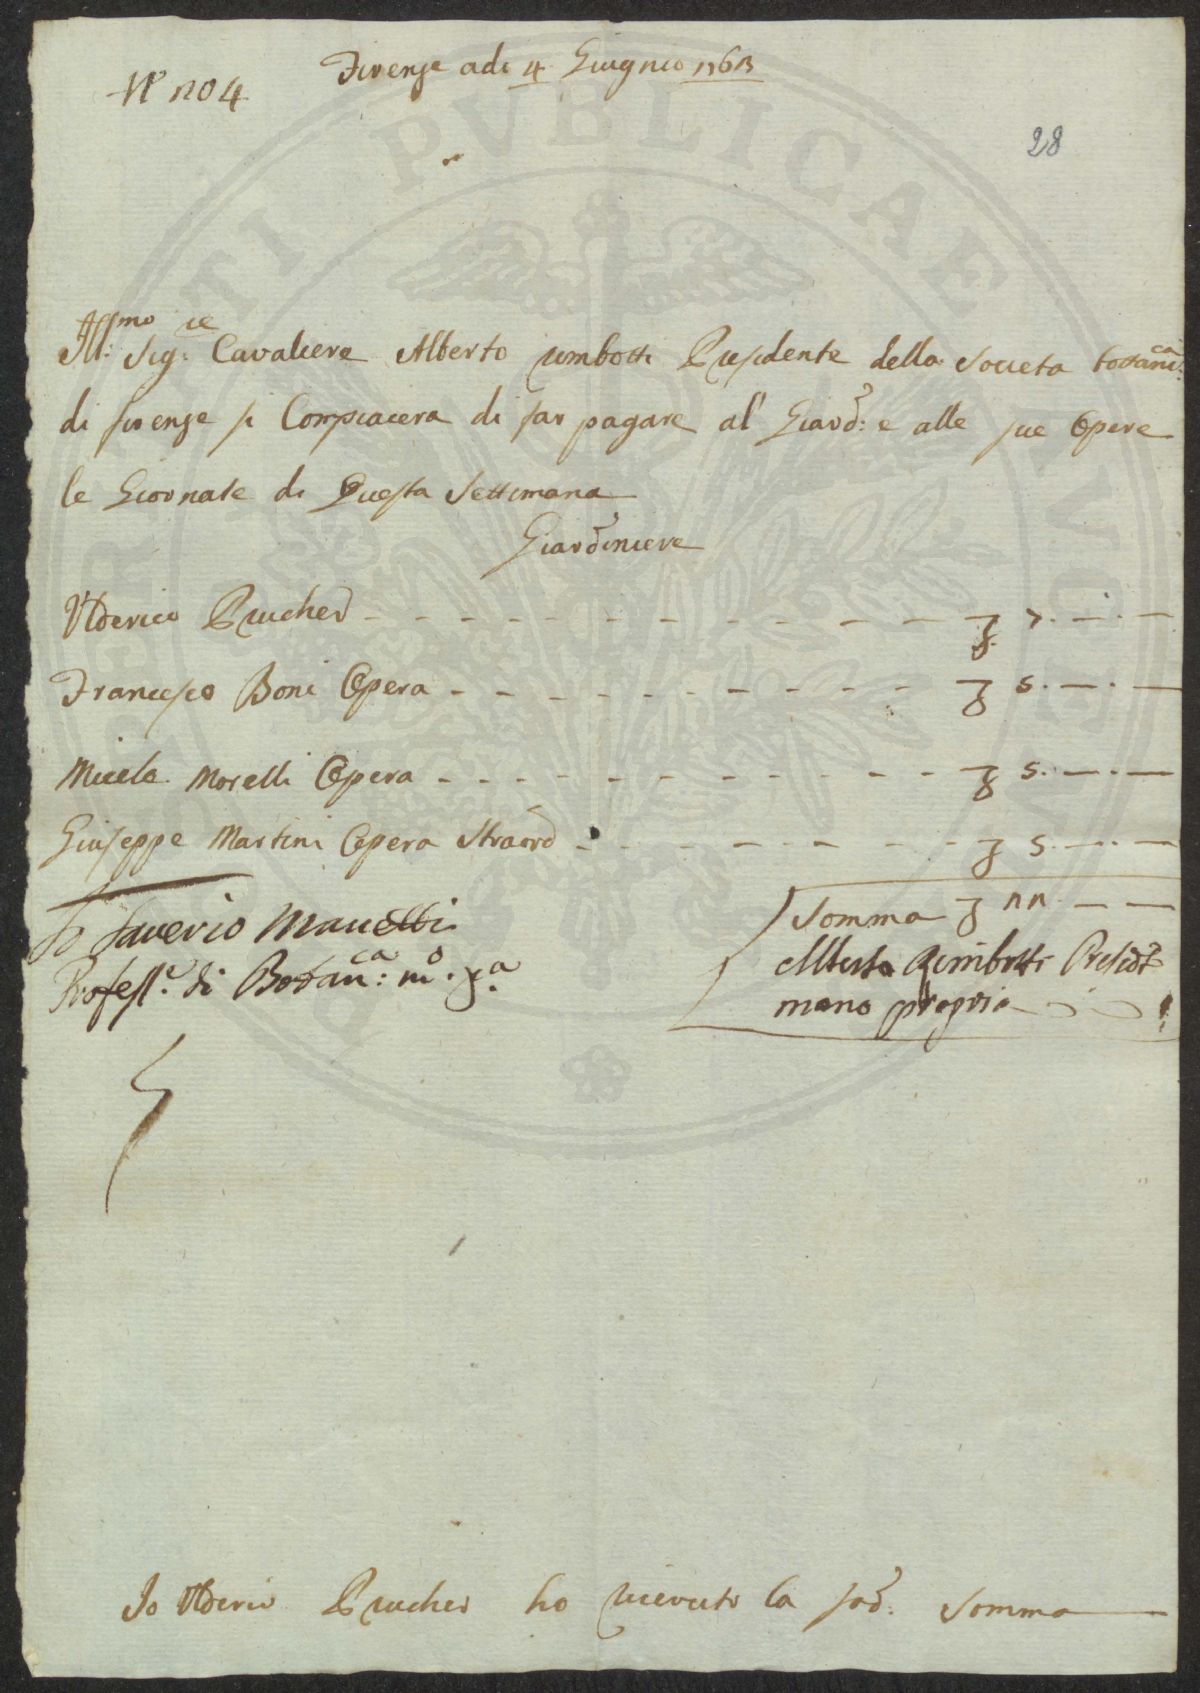 Firenze adi 4 Giugnio 1763
N° 104
28
Ill:mo Sig:re Cavaliere Alberto rimbotti Presidente della Società bottani:ca
di firenze si Compiacera di far pagare al' Giard: e alle sue Opere
le Giornate di Questa Settimana
Giardiniere
Ulderico Prucher - - - £ 7. — . —
Francesco Boni Opera - - - £ 5. — . —
Micele Morelli Opera - - - £ 5. — . —
Giuseppe Martini Opera Straord - - - £ 5. — . —
Somma £ 22 — —
Io Saverio Manetti
Profess.e di Botan:ca m.o p.a
Alberto Rimbotti Presidt
mano propria
Io Ulderico Prucher ho ricevuto la sad: Somma